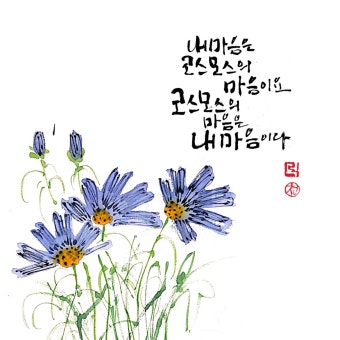 내 마음은
코스모스의
마음이요
코스모스의
마음은
내 마음이다